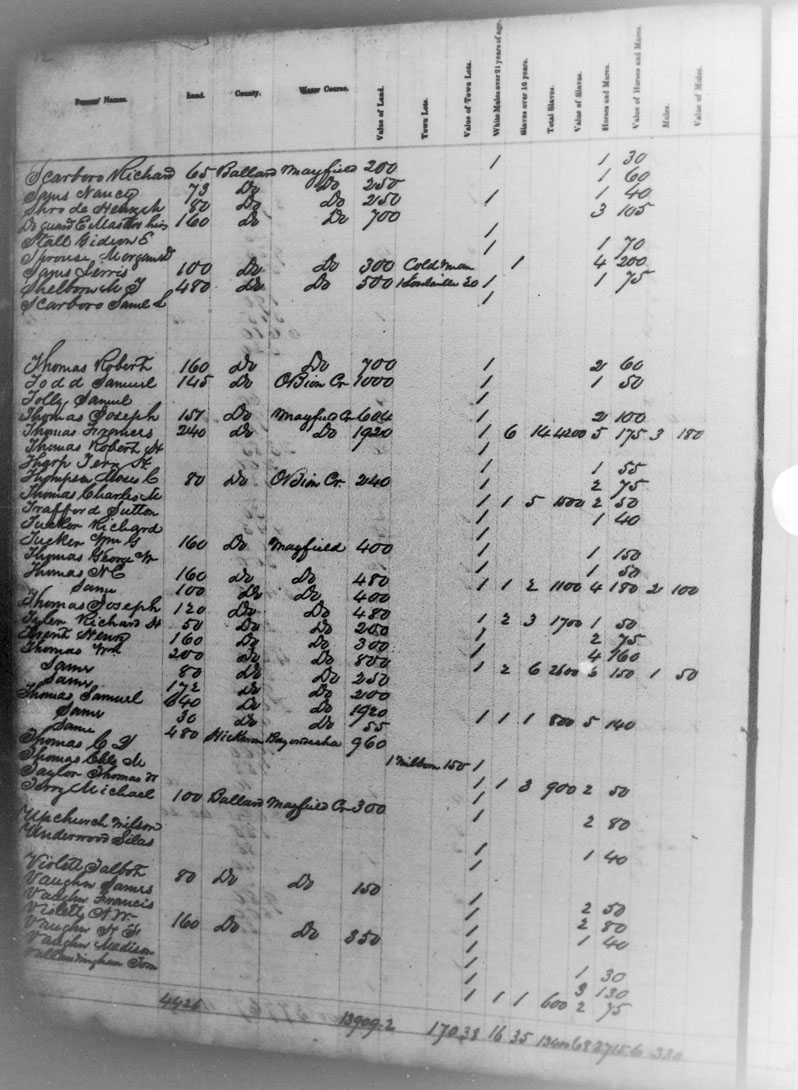 Persons' Names. Land. County. Water Course. Value of Land. Town Lots. Value of Town Lots. White Males over 21 years of age. Slaves over 16 years. Total Slaves. Value of Slaves. Horses and Mares. Value of Horses and Mares. Mules. Value of Mules.
Scarboro Richard 65 Ballard Mayfield 200 1 1 30
Nancy 73 Do Do 250 1 60
80 Do Do 250 1 1 40
160 Do Do 700 3 105
Stall Gideon E 1
Sprouse 1 1 70
100 Do Do 300 Cold man 1 4 200
480 Do Do 500 1 20 1 1 75
Scarboro Saml L 1
Thomas Robert 160 Do Do 700 1 2 60
Todd Samuel 145 Do OBion Cr 1000 1 1 50
Tolly Samuel 1
Thomas Joseph 157 Do Mayfield Cr 604 1 2 100
Thomas 240 Do Do 1920 1 6 14 4200 5 175 3 180
Thomas Robert H 1
Tharp H 1 1 55
Thompson C 80 Do OBion Cr 240 1 2 75
Thomas Charles M 1 1 5 1500 2 50
Trafford Sutton 1 1 40
Tucker Richard 1
Tucker Wm G 160 Do Mayfield 400 1 1 150
Thomas George W 1 1 50
Thomas N C 160 Do Do 480
Same 100 Do Do 400 1 1 2 1100 4 180 2 100
Thomas Joseph 120 Do Do 480
Tyler Richard H 50 Do Do 200 1 2 3 1700 1 50
Trent Henry 160 Do Do 300 1 2 75
Thomas Wm 200 Do Do 800 4 160
Same 80 Do Do 250 1 2 6 2600 6 150 1 50
Same 172 Do Do 200
Thomas Samuel 640 Do Do 1920
Same 30 Do Do 55 1 1 1 800 5 140
Same 480 Hickman 960
Thomas C D
Thomas M 1 Milburn 150 1
Taylor Thomas W 1 1 3 900 2 50
Terry Michael 100 Ballard Mayfield Cr 300 1
Upchurch Wilson 2 80
Underwood Silas 1 1 40
Violett Talbot 1
Vaughn James 80 Do Do 150
Vaughn Francis 1
Violett N W 1 2 50
Vaughn H F 160 Do Do 350 1 2 80
Vaughn Madison 1 1 40
Vallandingham 1 1 30
1 3 130
1 1 1 600 2 75
4426 13909.2 170 38 16 35 13400 68 2715 6 330